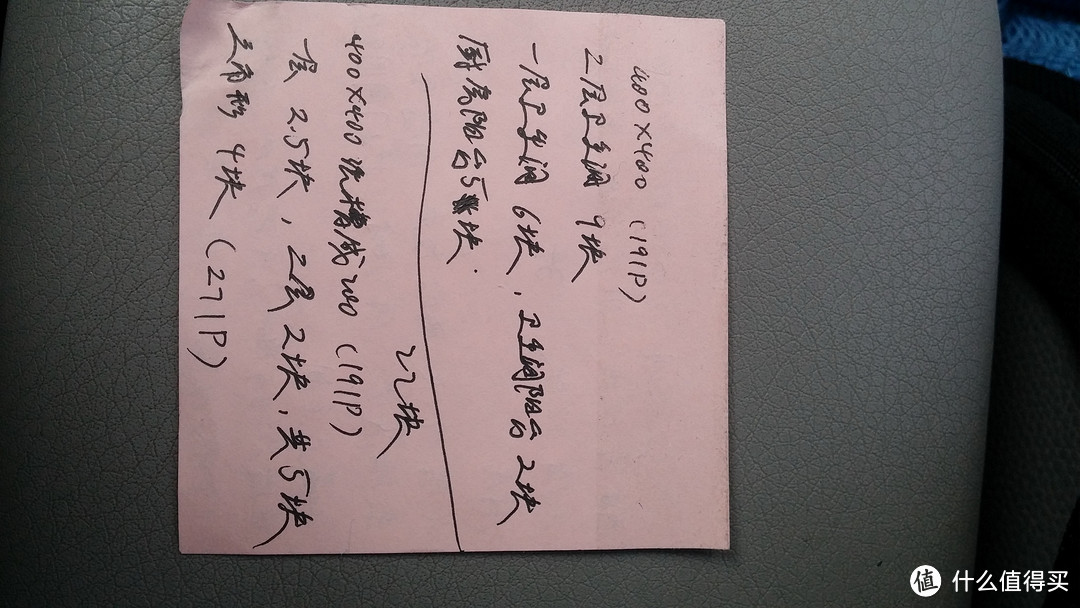 400×400 (191P)
2层卫生间 9块
一层卫生间 6块，卫生间阳台 2块
厨房阳台5块.
22块
400×400 洗槽成200 (191P)
一层 2.5块，2层 2块，共5块
三角形 4块 (271P)
值 什么值得买